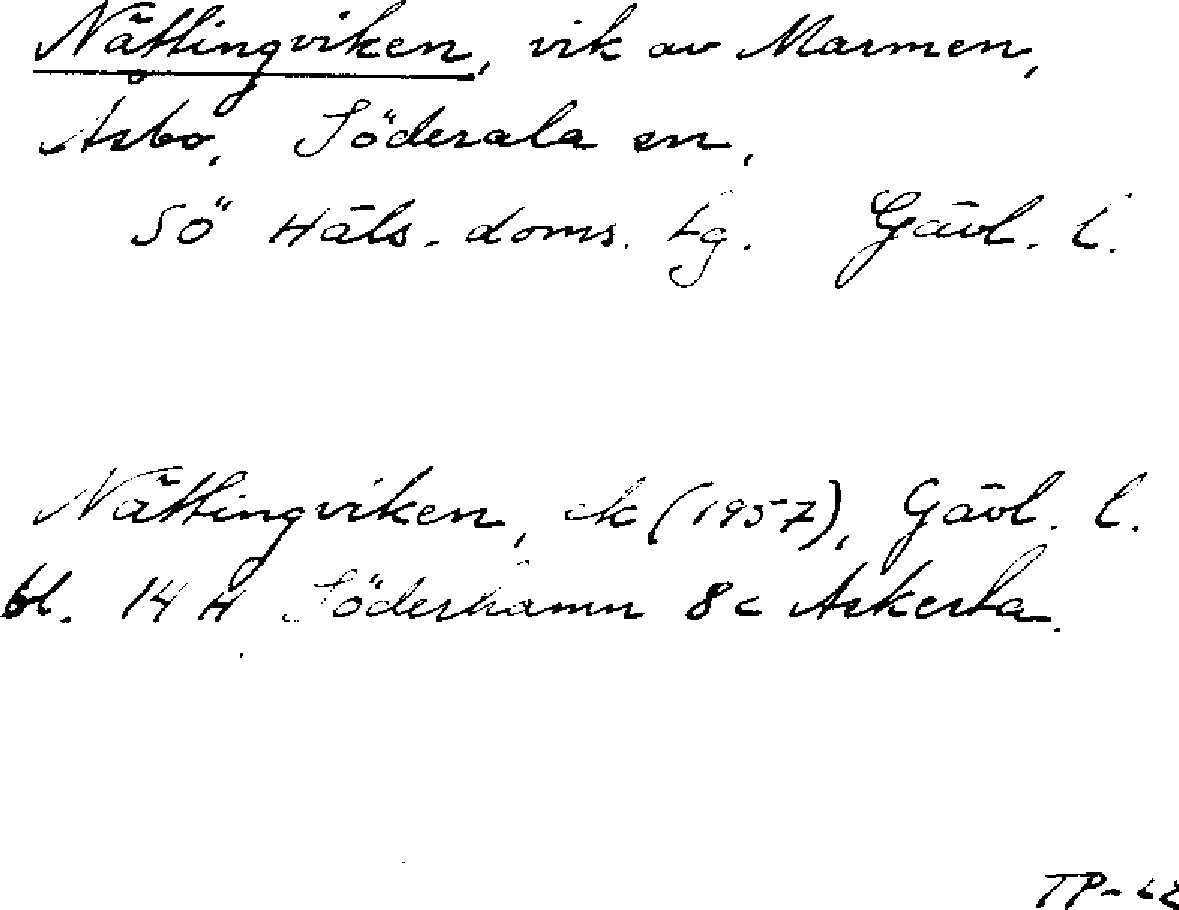 Nättingviken, vik av Marmen,
Åsbo, Söderala sn,
Sö Häls. doms. tg. Gävl. l.
Nättingviken, ek (1957), Gävl. l.
bl. 14 H Söderhamn 8 c Askesta.
TP-62